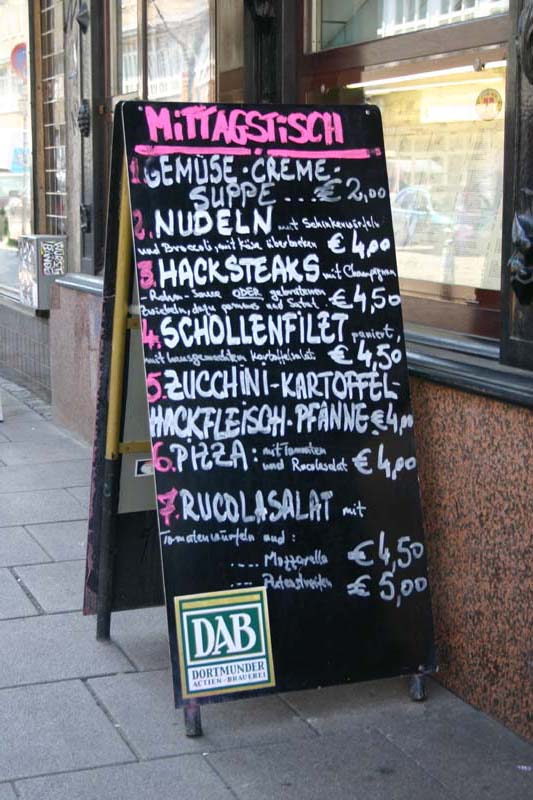 MITTAGSTISCH
1. GEMÜSE-CREME-
SUPPE ... € 2,00
2. NUDELN mit Schinkenwürfeln
und Broccoli, mit Käse überbacken € 4,00
3. HACKSTEAKS mit Champignon
-Rahm-Sauce ODER gebratenen
Zwiebeln, dazu pommes und Salat. € 4,50
4. SCHOLLENFILET paniert,
mit hausgemachtem Kartoffelsalat € 4,50
5. ZUCCHINI-KARTOFFEL-
HACKFLEISCH-PFANNE € 4,00
6. PIZZA: mit Tomaten
und Rucolasalat € 4,00
7. RUCOLASALAT mit
Tomatenwürfeln und:
.... Mozzarella € 4,50
.... Putenstreifen € 5,00
DAB
DORTMUNDER
ACTIEN-BRAUEREI